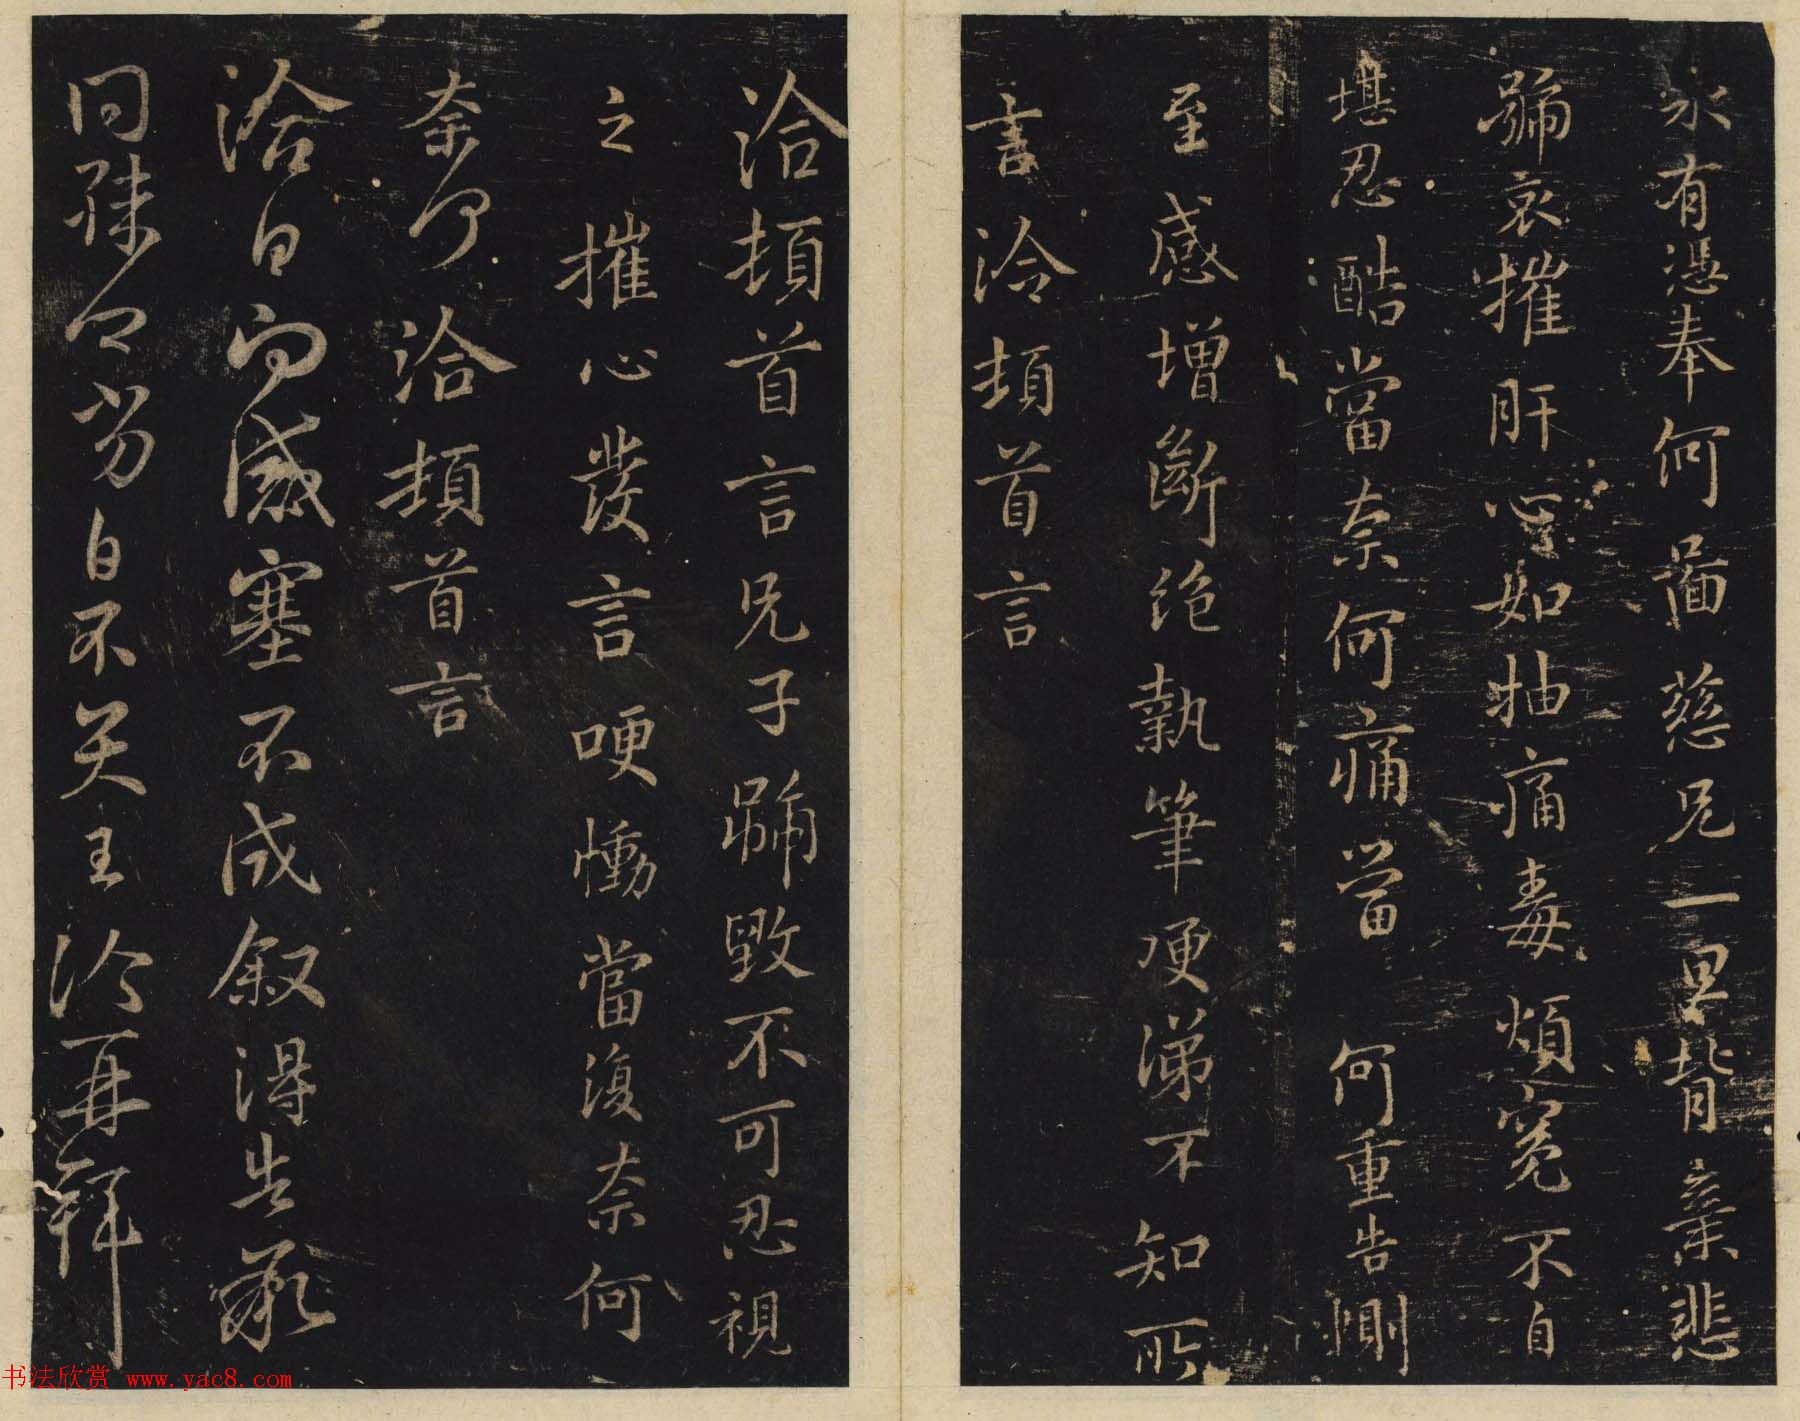 永有憑奉何啚慈兄一旦背棄悲
號哀摧肝心如抽痛毒煩冤不自
堪忍酷當奈何痛當何重告惻
至感增斷絕執筆哽涕不知所
言洽頓首言
洽頓首言兄子號毀不可忍視
之摧心發言哽慟當復奈何
奈何洽頓首言
洽白向感塞不成叙得告承
同殊不自
洽再拜
书法欣赏 www.yac8.com